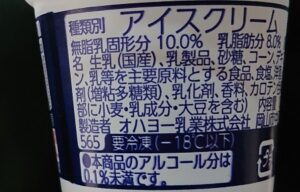 種類別 アイスクリーム
無脂乳固形分 10.0% 乳脂肪分 8.0%
名 生乳(国産)、乳製品、砂糖、コーン、チ
ン、乳等を主要原料とする食品、食塩、洋
剤(増粘多糖類)、乳化剤、香料、カロテン
部に小麦・乳成分・大豆を含む)
製造者 オハヨー乳業株式会社 岡山市
565 要冷凍(-18℃以下)
●本商品のアルコール分は
0.1%未満です。